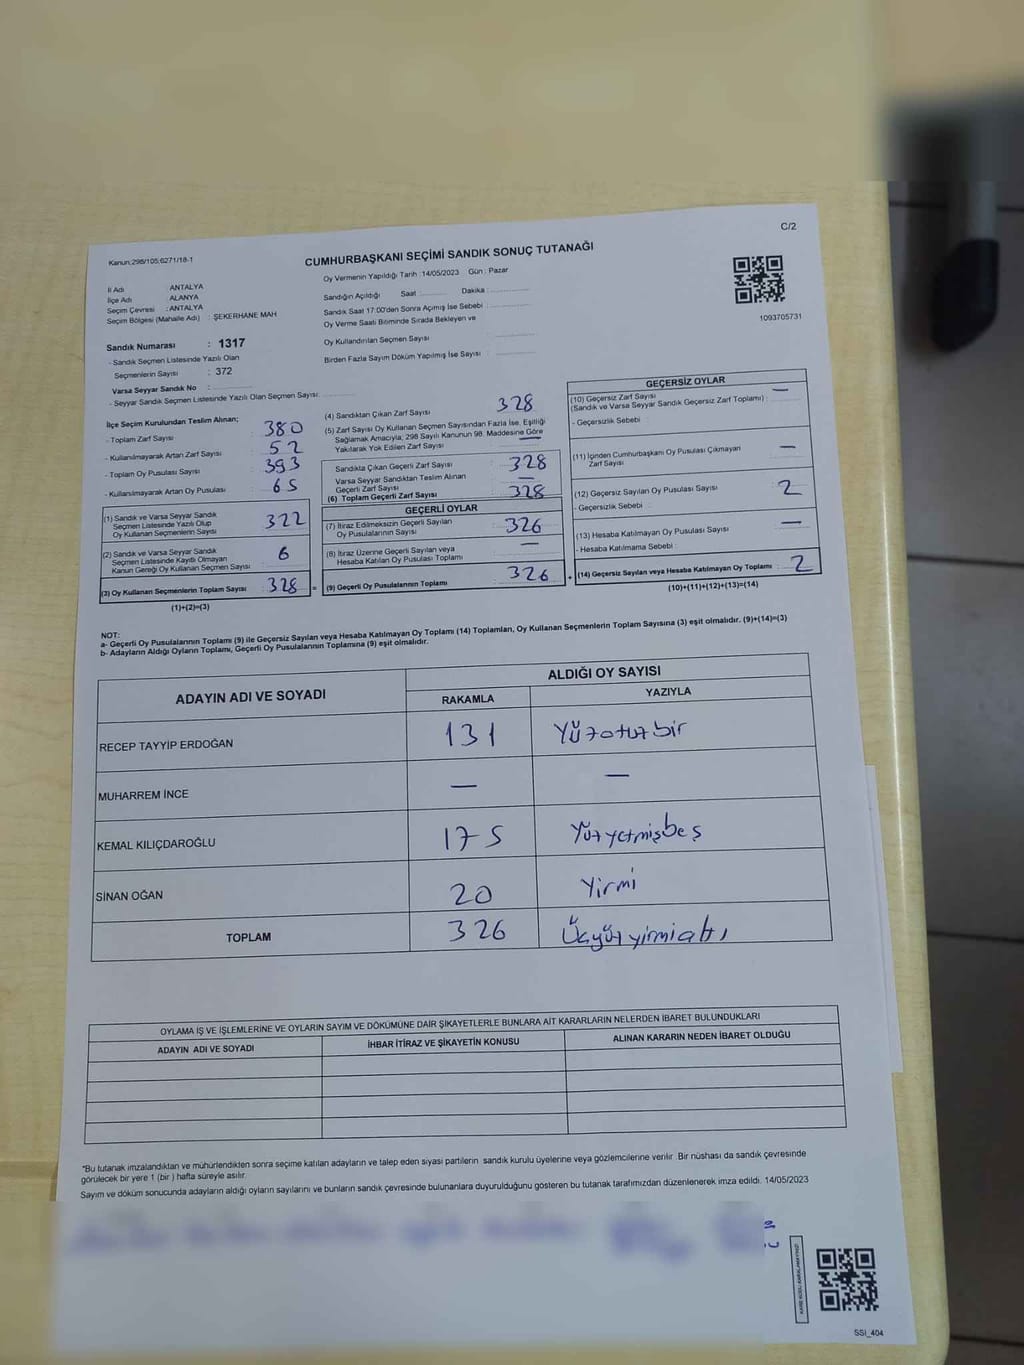 C/2
Kanun:298/105;6271/18-1
CUMHURBAŞKANI SEÇİMİ SANDIK SONUÇ TUTANAĞI
Oy Vermenin Yapıldığı Tarih :14/05/2023 Gün : Pazar
İl Adı : ANTALYA
İlçe Adı : ALANYA
Seçim Çevresi : ANTALYA
Seçim Bölgesi (Mahalle Adı) : ŞEKERHANE MAH.
Sandık Numarası : 1317
- Sandık Seçmen Listesinde Yazılı Olan
Seçmenlerin Sayısı : 372
Varsa Seyyar Sandık No :
- Seyyar Sandık Seçmen Listesinde Yazılı Olan Seçmen Sayısı:
Sandığın Açıldığı Saat : Dakika :
Sandık Saat 17:00'den Sonra Açımış İse Sebebi :
Oy Verme Saati Bitiminde Sırada Bekleyen ve
Oy Kullandırılan Seçmen Sayısı :
Birden Fazla Sayım Döküm Yapılmış İse Sayısı :
1093705731
İlçe Seçim Kurulundan Teslim Alınan;
- Toplam Zarf Sayısı : 380
- Kullanılmayarak Artan Zarf Sayısı : 52
- Toplam Oy Pusulası Sayısı : 393
- Kullanılmayarak Artan Oy Pusulası : 65
(1) Sandık ve Varsa Seyyar Sandık
Seçmen Listesinde Yazılı Olup
Oy Kullanan Seçmenlerin Sayısı : 322
(2) Sandık ve Varsa Seyyar Sandık
Seçmen Listesinde Kayıtlı Olmayan
Kanun Gereği Oy Kullanan Seçmen Sayısı : 6
(3) Oy Kullanan Seçmenlerin Toplam Sayısı : 328 =
(1)+(2)=(3)
(4) Sandıktan Çıkan Zarf Sayısı : 328
(5) Zarf Sayısı Oy Kullanan Seçmen Sayısından Fazla İse, Eşitliği
Sağlamak Amacıyla; 298 Sayılı Kanunun 98. Maddesine Göre
Yakılarak Yok Edilen Zarf Sayısı : —
Sandıkta Çıkan Geçerli Zarf Sayısı : 328
Varsa Seyyar Sandıktan Teslim Alınan
Geçerli Zarf Sayısı : —
(6) Toplam Geçerli Zarf Sayısı : 328
GEÇERLİ OYLAR
(7) İtiraz Edilmeksizin Geçerli Sayılan
Oy Pusulasının Sayısı : 326
(8) İtiraz Üzerine Geçerli Sayılan veya
Hesaba Katılan Oy Pusulası Toplamı : —
(9) Geçerli Oy Pusulalarının Toplamı : 326 +
GEÇERSİZ OYLAR
(10) Geçersiz Zarf Sayısı —
(Sandık ve Varsa Seyyar Sandık Geçersiz Zarf Toplamı) :
- Geçersizlik Sebebi
(11) İçinden Cumhurbaşkanı Oy Pusulası Çıkmayan
Zarf Sayısı : —
(12) Geçersiz Sayılan Oy Pusulası Sayısı : 2
- Geçersizlik Sebebi :
(13) Hesaba Katılmayan Oy Pusulası Sayısı : —
- Hesaba Katılmama Sebebi :
(14) Geçersiz Sayılan veya Hesaba Katılmayan Oy Toplamı : 2
(10)+(11)+(12)+(13)=(14)
NOT:
a- Geçerli Oy Pusulalarının Toplamı (9) ile Geçersiz Sayılan veya Hesaba Katılmayan Oy Toplamı (14) Toplamları, Oy Kullanan Seçmenlerin Toplam Sayısına (3) eşit olmalıdır. (9)+(14)=(3)
b- Adayların Aldığı Oyların Toplamı, Geçerli Oy Pusulalarının Toplamına (9) eşit olmalıdır.
ADAYIN ADI VE SOYADI
ALDIĞI OY SAYISI
RAKAMLA YAZIYLA
RECEP TAYYİP ERDOĞAN 131 Yüzotuzbir
MUHARREM İNCE — —
KEMAL KILIÇDAROĞLU 175 Yüzyetmişbeş
SİNAN OĞAN 20 Yirmi
TOPLAM 326 Üçyüzyirmialtı
OYLAMA İŞ VE İŞLEMLERİNE VE OYLARIN SAYIM VE DÖKÜMÜNE DAİR ŞİKAYETLERLE BUNLARA AİT KARARLARIN NELERDEN İBARET BULUNDUKLARI
ADAYIN ADI VE SOYADI İHBAR İTİRAZ VE ŞİKAYETİN KONUSU ALINAN KARARIN NEDEN İBARET OLDUĞU
*Bu tutanak imzalandıktan ve mühürlendikten sonra seçime katılan adayların ve talep eden siyasi partilerin sandık kurulu üyelerine veya gözlemcilerine verilir. Bir nüshası da sandık çevresinde
görülecek bir yere 1 (bir ) hafta süreyle asılır.
Sayım ve döküm sonucunda adayların aldığı oyların sayılarını ve bunların sandık çevresinde bulunanlara duyurulduğunu gösteren bu tutanak tarafımızdan düzenlenerek imza edildi. 14/05/2023
SSI_404